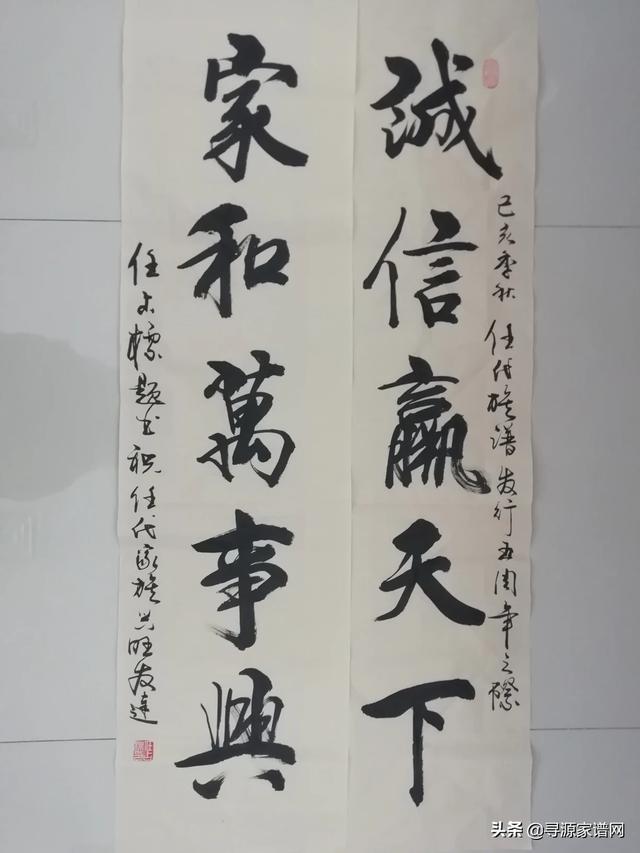 誠信贏天下
己亥季秋 任代族譜发行五周年之際
家和萬事興
任占標题书祝任代家族兴旺发達
头条 @寻源家谱网